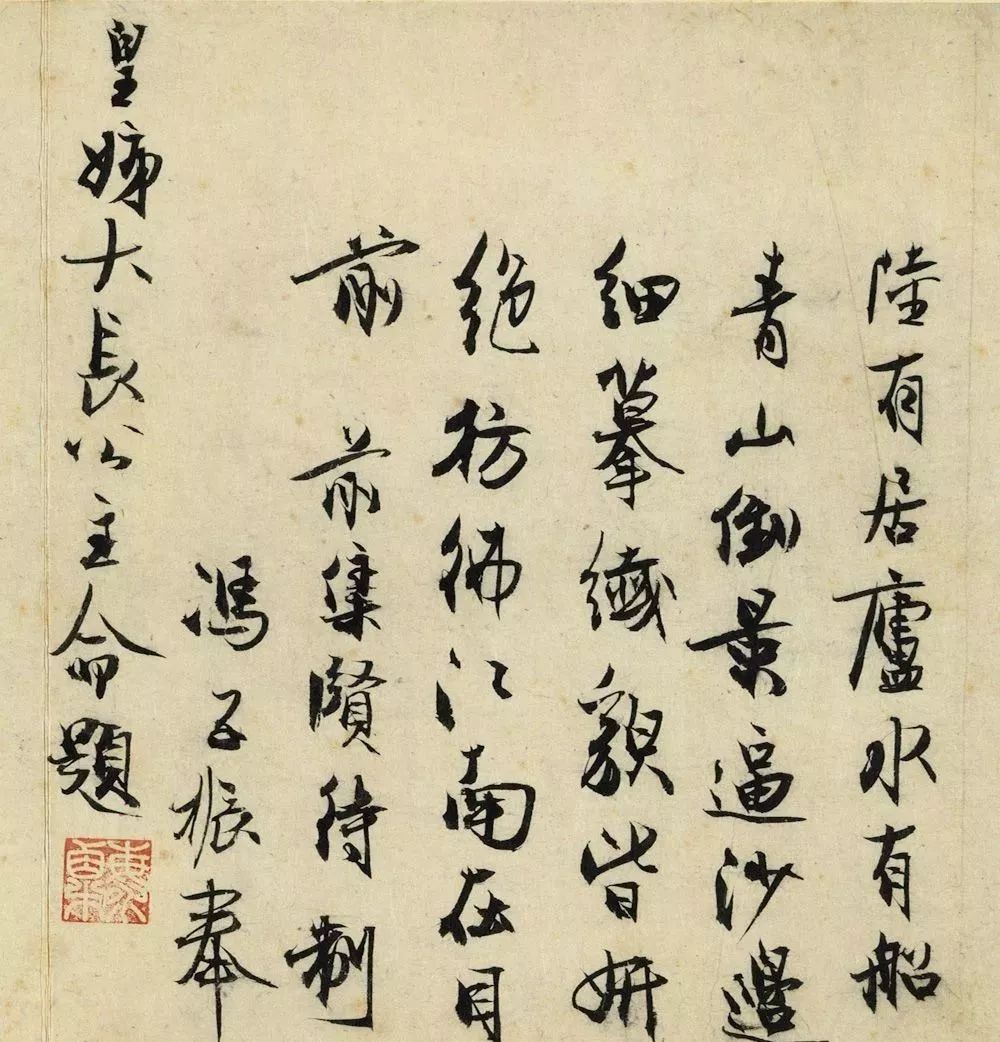 陸有居廬水有船
青山倒景逼沙邊
細摹纖貌皆妍
絕彷彿江南在目
前　前集賢待制
馮子振奉
皇姊大長公主命題